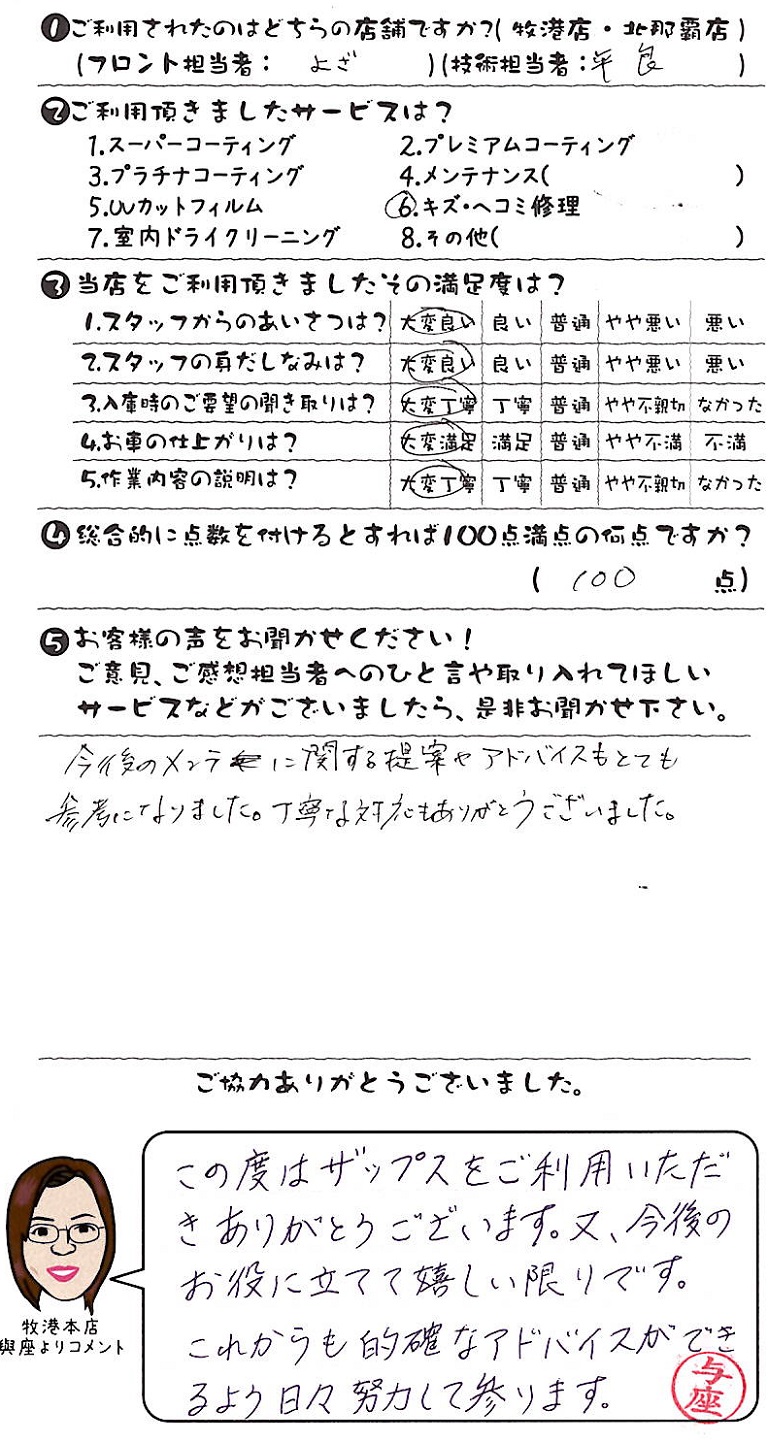 ❶ご利用されたのはどちらの店舗ですか?(牧港店・北那覇店)
(フロント担当者: よざ )(技術担当者:平良 )
❷ご利用頂きましたサービスは?
1.スーパーコーティング 2.プレミアムコーティング
3.プラチナコーティング 4.メンテナンス( )
5.UVカットフィルム 6.キズ・ヘコミ修理
7.室内ドライクリーニング 8.その他( )
❸当店をご利用頂きましたその満足度は?
1.スタッフからのあいさつは? 大変良い 良い 普通 やや悪い 悪い
2.スタッフの身だしなみは? 大変良い 良い 普通 やや悪い 悪い
3.入庫時のご要望の聞き取りは? 大変丁寧 丁寧 普通 やや不親切 なかった
4.お車の仕上がりは? 大変満足 満足 普通 やや不満 不満
5.作業内容の説明は? 大変丁寧 丁寧 普通 やや不親切 なかった
❹総合的に点数を付けるとすれば100点満点の何点ですか?
( 100 点)
❺お客様の声をお聞かせください!
ご意見、ご感想担当者へのひと言や取り入れてほしい
サービスなどがございましたら、是非お聞かせ下さい。
今後のメンテに関する提案やアドバイスもとても
参考になりました。丁寧な対応もありがとうございました。
ご協力ありがとうございました。
この度はザップスをご利用いただ
きありがとうございます。又、今後の
お役に立てて嬉しい限りです。
これからも的確なアドバイスができ
るよう日々努力して参ります。
与座
牧港本店
與座よりコメント